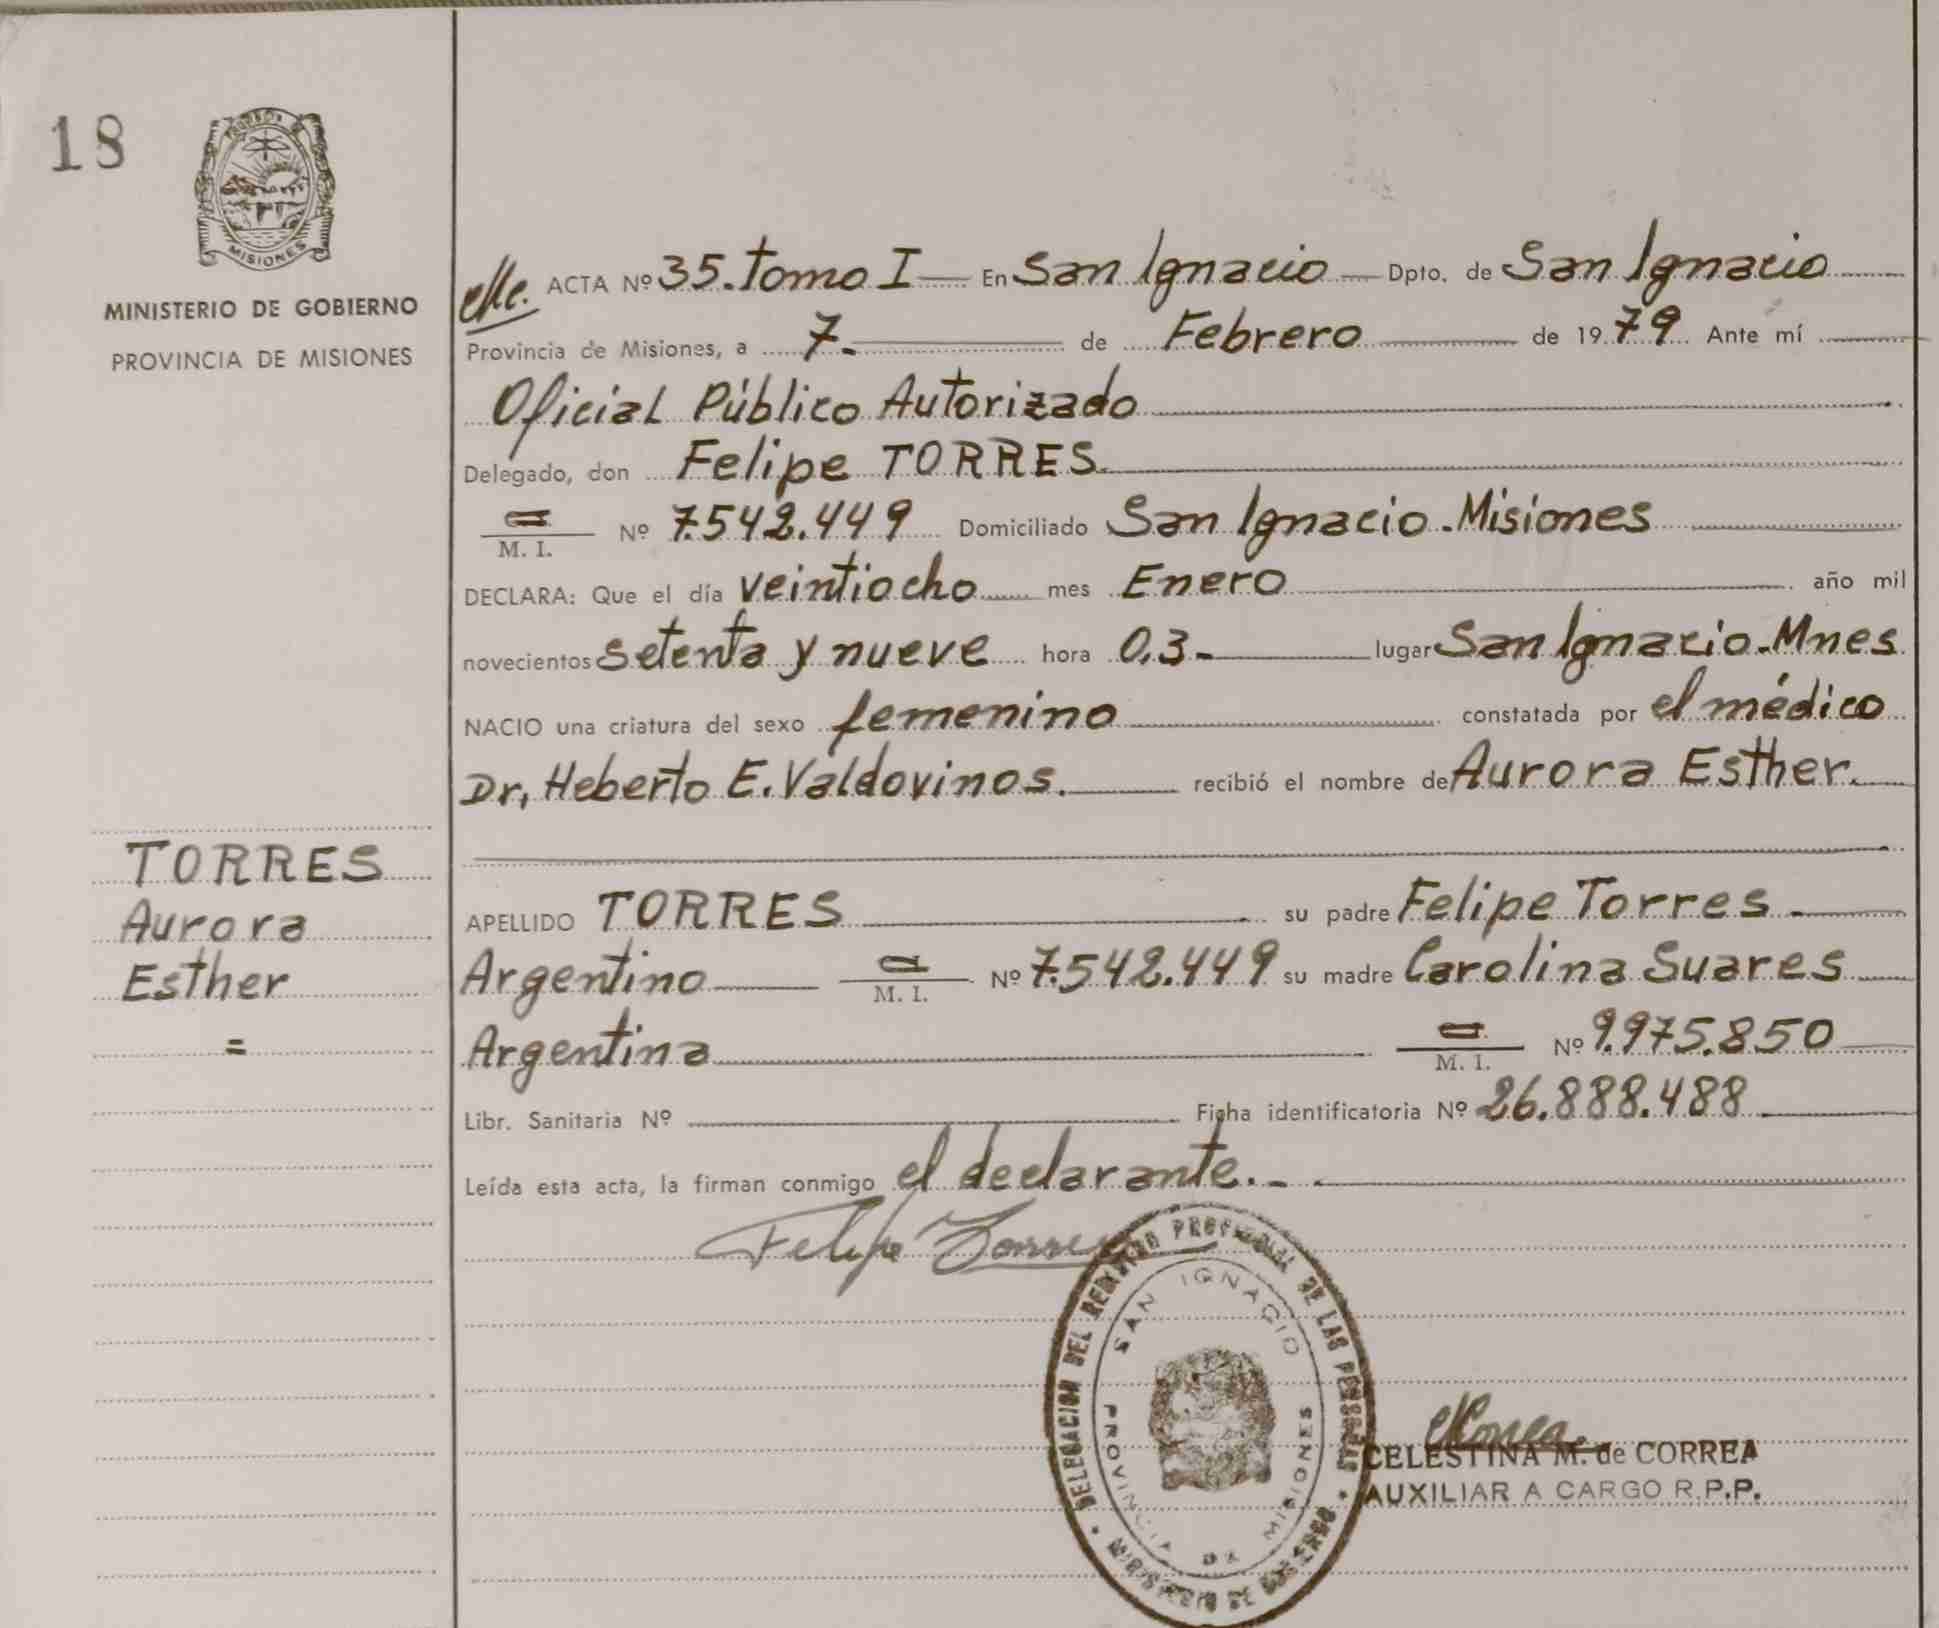 18
MISIONES
MINISTERIO DE GOBIERNO
PROVINCIA DE MISIONES
ACTA Nº 35. Tomo I En San Ignacio Dpto. de San Ignacio
Provincia de Misiones, a 7.- de Febrero de 1979 Ante mí
Oficial Público Autorizado
Delegado, don Felipe TORRES.
M. I. Nº 7.542.449 Domiciliado San Ignacio.Misiones
DECLARA: Que el día veintiocho mes Enero año mil
novecientos setenta y nueve hora 0,3- lugar San Ignacio.Mnes
NACIO una criatura del sexo femenino constatada por el médico
Dr, Heberto E. Valdovinos. recibió el nombre de Aurora Esther.
TORRES
Aurora
Esther
=
APELLIDO TORRES su padre Felipe Torres.
Argentino M. I. Nº 7.542.449 su madre Carolina Suares
Argentina M. I. Nº 9.975.850
Libr. Sanitaria Nº Ficha identificatoria Nº 26.888.488
Leída esta acta, la firman conmigo el declarante.-
Felipe Torres
DELEGACION DEL REGISTRO PROVINCIAL DE LAS PERSONAS
MINISTERIO DE GOBIERNO
SAN IGNACIO
PROVINCIA DE MISIONES
CELESTINA M. de CORREA
AUXILIAR A CARGO R.P.P.